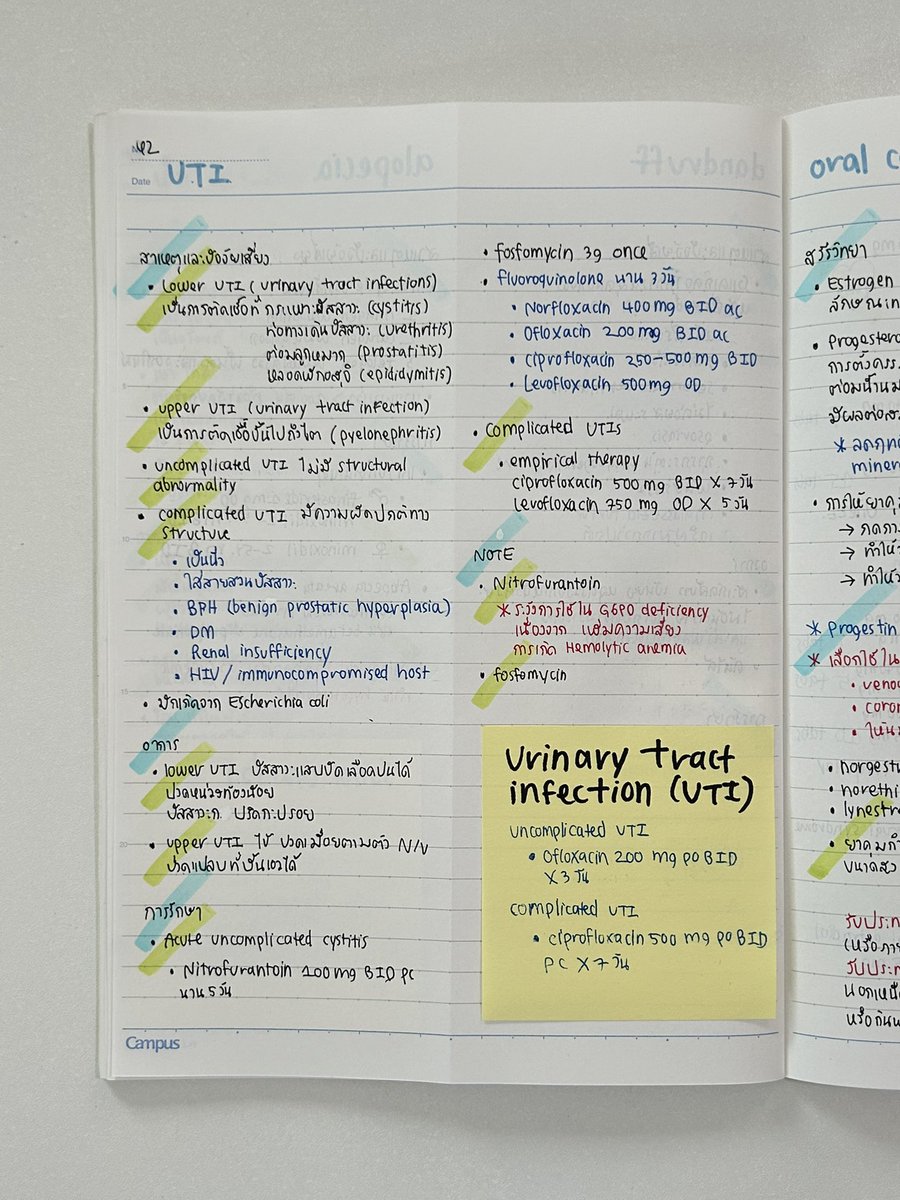 42
Date UTI
สาเหตุและปัจจัยเสี่ยง
• lower UTI (urinary tract infections)
เป็นการติดเชื้อที่ กระเพาะปัสสาวะ (cystitis)
ท่อทางเดินปัสสาวะ (urethritis)
ต่อมลูกหมาก (prostatitis)
หลอดพักอสุจิ (epididymitis)
• upper UTI (urinary tract infection)
เป็นการติดเชื้อขึ้นไปถึงไต (pyelonephritis)
• uncomplicated UTI ไม่มี structural
abnormality
• complicated UTI มีความผิดปกติทาง
structure
• เป็นนิ่ว
• ใส่สายสวนปัสสาวะ
• BPH (benign prostatic hyperplasia)
• DM
• Renal insufficiency
• HIV / immunocompromised host
• มักเกิดจาก Escherichia coli
อาการ
• lower UTI ปัสสาวะแสบขัดเลือดปนได้
ปวดหน่วงท้องน้อย
ปัสสาวะก ปริดกะปรอย
• upper UTI ไข้ ปวดเมื่อยตามตัว N/V
ปวดแปลบที่บั้นเอวได้
การรักษา
• Acute uncomplicated cystitis
• Nitrofurantoin 100 mg BID pc
นาน 5 วัน
Campus
• fosfomycin 3g once
• fluoroquinolone นาน 3 วัน
• Norfloxacin 400 mg BID ac
• Ofloxacin 200 mg BID ac
• ciprofloxacin 250-500 mg BID
• Levofloxacin 500 mg OD
• complicated UTIs
• empirical therapy
ciprofloxacin 500 mg BID X 7 วัน
Levofloxacin 750 mg OD X 5 วัน
NOTE
• Nitrofurantoin
* ระวังการใช้ใน G6PD deficiency
เนื่องจาก เพิ่มความเสี่ยง
การเกิด Hemolytic anemia
• fosfomycin
Urinary tract
infection (UTI)
uncomplicated UTI
• Ofloxacin 200 mg po BID
X 3 วัน
complicated UTI
• ciprofloxacin 500 mg po BID
pc X 7 วัน
oral c
สรีรวิทยา
• Estrogen
ลักษณะเพ
• progester
การตั้งครร
ต่อมน้ำนม
มีผลต่อส
* ลดฤท
miner
• การให้ยาคุ
→ กดกา
→ ทำให้
→ ทำให้
* progestin
* เลือกใช้ใน
• veno
• coro
• ให้น
• norgest
• norethi
• lynestr
• ยาคุมกำ
ขนาดสูง
รับประท
(หรือภาย
รับประท
นอกเหนื
หรือกินท